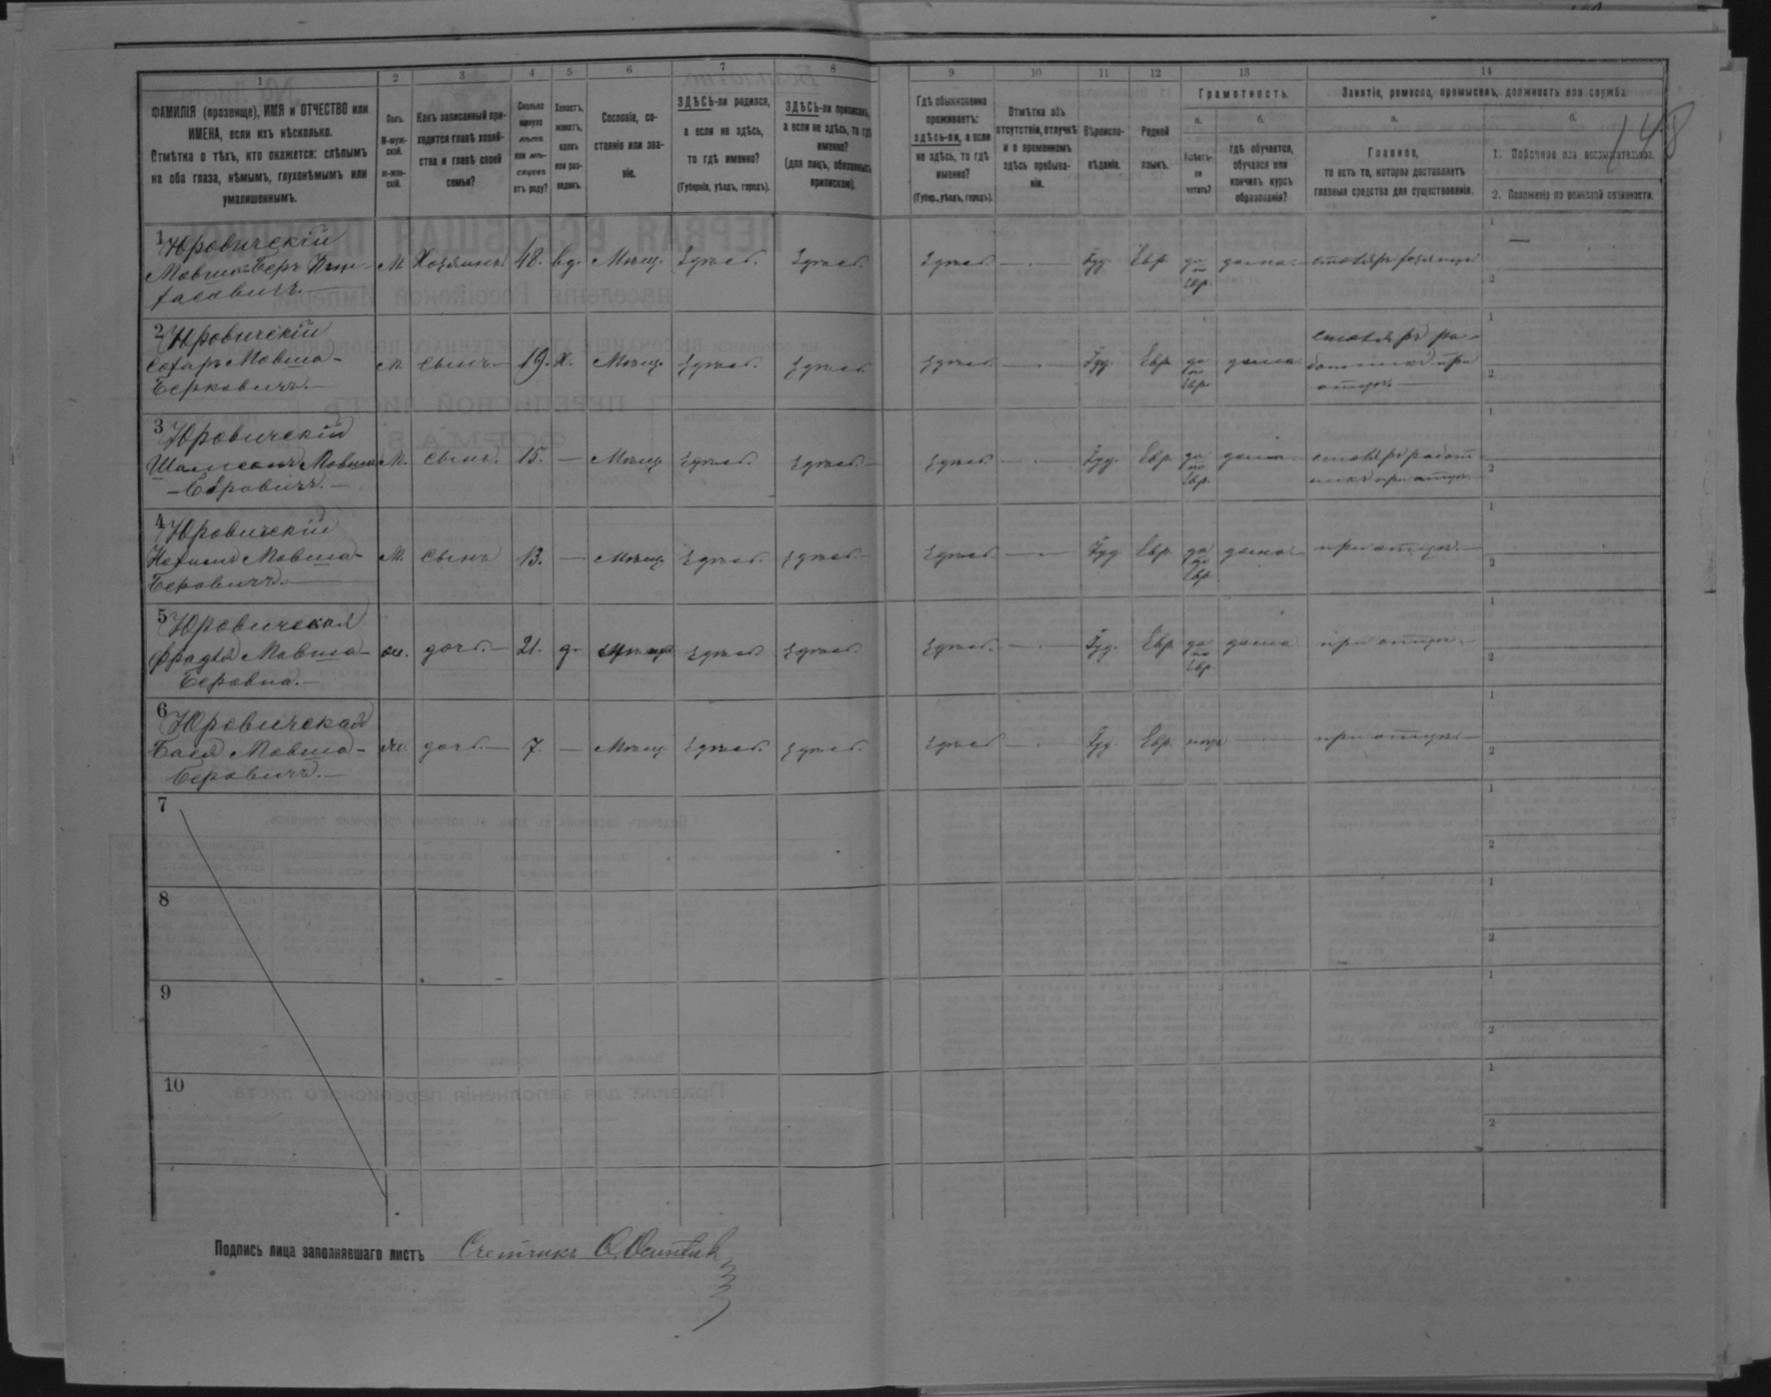 148
1 2 3 4 5 6 7 8 9 10 11 12 13 14
ФАМИЛІЯ (прозвище), ИМЯ и ОТЧЕСТВО или
ИМЕНА, если ихъ нѣсколько.
Отмѣтка о тѣхъ, кто окажется: слѣпымъ
на оба глаза, нѣмымъ, глухонѣмымъ или
умалишеннымъ.
Полъ.
М-муж-
ской.
ж-жен-
скій.
Какъ записанный при-
ходится главѣ хозяй-
ства и главѣ своей
семьи?
Сколько
минуло
лѣтъ
или мѣ-
сяцевъ
отъ роду?
Холостъ,
женатъ,
вдовъ
или раз-
веденъ.
Сословіе, со-
стояніе или зва-
ніе.
ЗДѢСЬ-ли родился,
а если не здѣсь,
то гдѣ именно?
(Губернія, уѣздъ, городъ).
ЗДѢСЬ-ли приписанъ,
а если не здѣсь, то гдѣ
именно?
(для лицъ, обязанныхъ
припискою).
Гдѣ обыкновенно
проживаетъ:
здѣсь-ли, а если
не здѣсь, то гдѣ
именно?
(Губер., уѣздъ, городъ).
Отмѣтка объ
отсутствіи, отлучкѣ
и о временномъ
здѣсь пребыва-
ніи.
Вѣроиспо-
вѣданіе.
Родной
языкъ.
Грамотность.
а.
Умѣетъ-
ли
читать?
б.
гдѣ обучается,
обучался или
кончилъ курсъ
образованія?
Занятіе, ремесло, промыселъ, должность или служба.
а.
Главное,
то есть то, которое доставляетъ
главныя средства для существованія.
б.
1. Побочное или вспомогательное.
2. Положеніе по воинской повинности.
1 Юровичскій
Мовша-Беръ
м. Хозяинъ 48. вд. Мѣщ. Здѣсь. Здѣсь. Здѣсь. — Іуд. Евр. да по Евр. дома столяръ хозяинъ —
2 Юровичскій
Мовша-
Берковичъ.
м. сынъ 19. х. Мѣщ. Здѣсь Здѣсь Здѣсь — Іуд. Евр. да по Евр. дома столяръ ра-
ботникъ при
отцѣ
3 Юровичскій
Мовша
-Беровичъ.
м. сынъ. 15. — Мѣщ. Здѣсь. Здѣсь Здѣсь — Іуд. Евр. да по Евр. дома столяръ работ
никъ при отцѣ
4 Юровичскій
Мовша-
Беровичъ.
м. сынъ 13. — Мѣщ. Здѣсь. Здѣсь Здѣсь — Іуд. Евр. да по Евр. дома при отцѣ
5 Юровичская
Фрадля Мовша-
Беровна.
ж. дочь. 21. д. Здѣсь Здѣсь Здѣсь. — Іуд. Евр. да по Евр. дома при отцѣ
6 Юровичская
Бася Мовша-
Беровичъ.
ж. дочь. 7. — Мѣщ. Здѣсь. Здѣсь. Здѣсь — Іуд. Евр. нѣтъ — при отцѣ
7
8
9
10
Подпись лица заполнявшаго листъ Счетчикъ